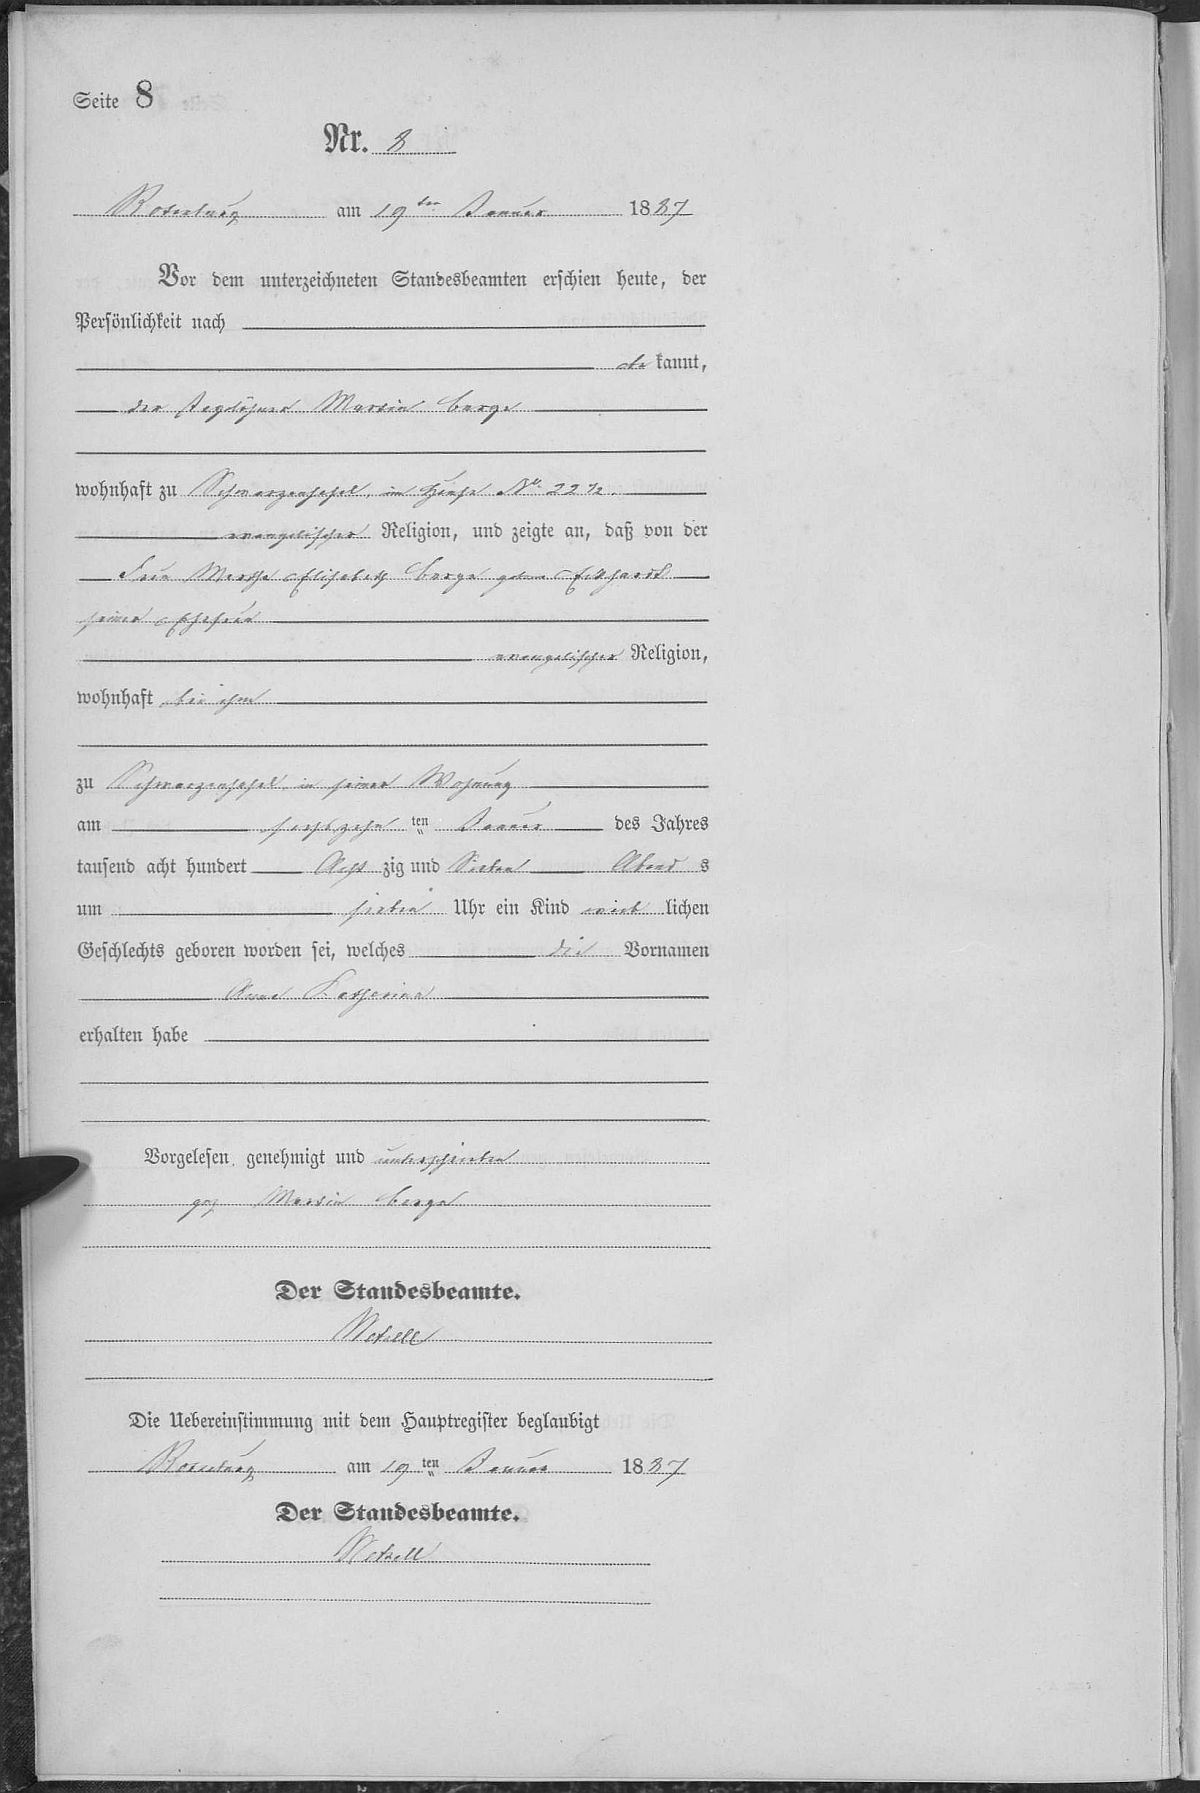 Seite 8
Nr. 8
Rotenburg am 19ten Januar 1887
Vor dem unterzeichneten Standesbeamten erschien heute, der
Persönlichkeit nach
be kannt,
der Tagelöhner Martin Berge
wohnhaft zu Schwarzenhasel, im Hause No 22½.
evangelischer Religion, und zeigte an, daß von der
Frau Martha Elisabeth Berge geborne Eckhardt
seiner Ehefrau
evangelischer Religion,
wohnhaft bei ihm
zu Schwarzenhasel, in seiner Wohnung
am sechszehn ten Januar des Jahres
tausend acht hundert Acht zig und Sieben Abend s
um sieben Uhr ein Kind weib lichen
Geschlechts geboren worden sei, welches die Vornamen
Anna Katharina
erhalten habe
Vorgelesen, genehmigt und unterschrieben
gez. Martin Berge
Der Standesbeamte.
Die Uebereinstimmung mit dem Hauptregister beglaubigt
Rotenburg am 19 ten Januar 1887
Der Standesbeamte.